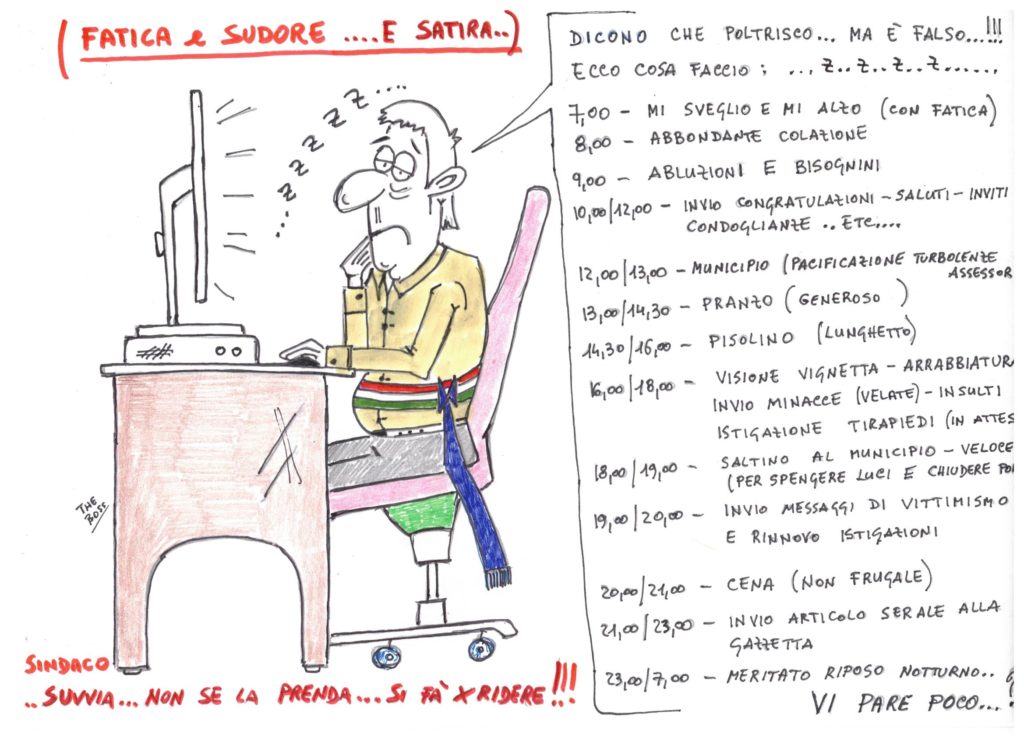 (FATICA e SUDORE ....E SATIRA..)
DICONO CHE POLTRISCO... MA È FALSO...!!!
ECCO COSA FACCIO; ...Z..Z..Z..Z......
7,00 - MI SVEGLIO E MI ALZO (CON FATICA)
8,00 - ABBONDANTE COLAZIONE
9,00 - ABLUZIONI E BISOGNINI
10,00/12,00 - INVIO CONGRATULAZIONI - SALUTI - INVITI
CONDOGLIANZE .. ETC....
12,00/13,00 - MUNICIPIO (PACIFICAZIONE TURBOLENZE
ASSESSOR
13,00/14,30 - PRANZO (GENEROSO )
14,30/16,00 - PISOLINO (LUNGHETTO)
16,00/18,00 - VISIONE VIGNETTA - ARRABBIATUR
INVIO MINACCE (VELATE) - INSULTI
ISTIGAZIONE TIRAPIEDI (IN ATTES
18,00/19,00 - SALTINO AL MUNICIPIO - VELOCE
(PER SPENGERE LUCI E CHIUDERE PO
19,00/20,00 - INVIO MESSAGGI DI VITTIMISMO
E RINNOVO ISTIGAZIONI
20,00/21,00 - CENA (NON FRUGALE)
21,00/23,00 - INVIO ARTICOLO SERALE ALLA
GAZZETTA
23,00/7,00 - MERITATO RIPOSO NOTTURNO..
VI PARE POCO...!
...Z Z Z Z Z....
THE
BOSS
SINDACO
..SUVVIA... NON SE LA PRENDA... SI FÀ X RIDERE..!!!